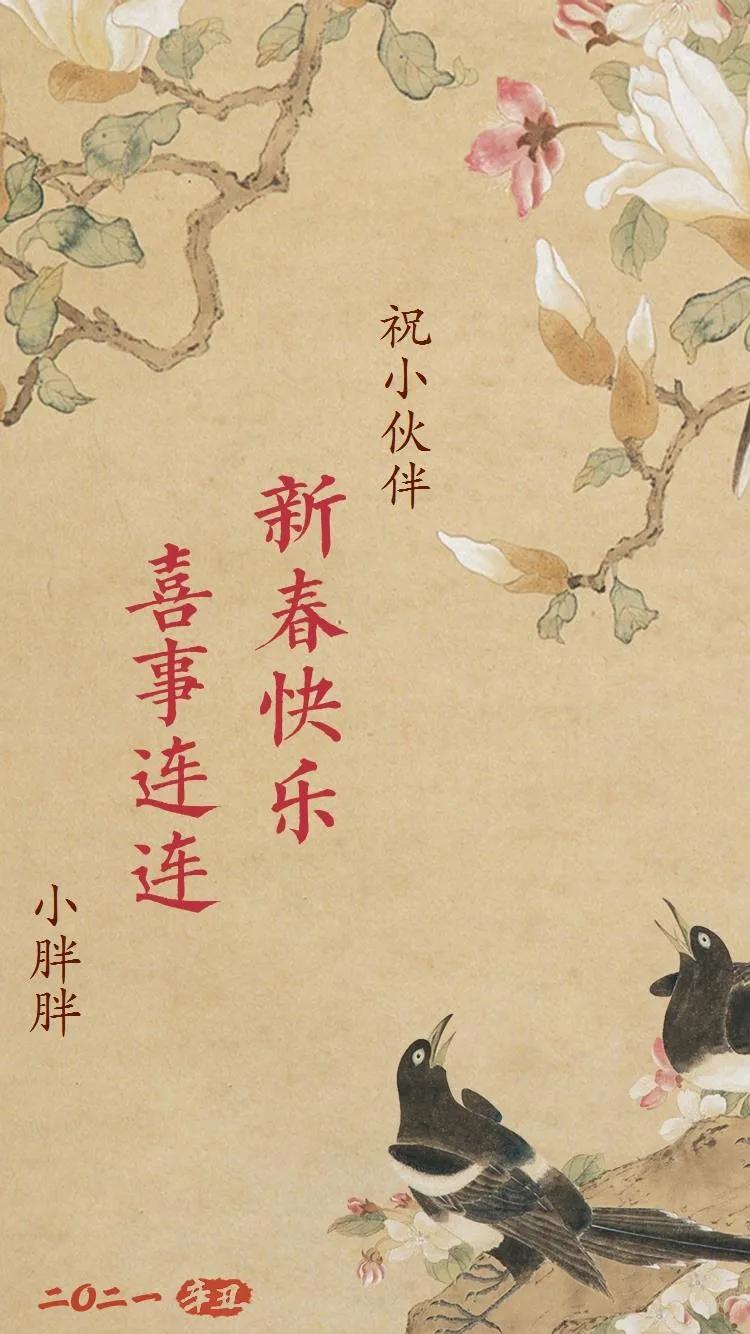 祝小伙伴
新春快乐
喜事连连
小胖胖
二〇二一 辛丑